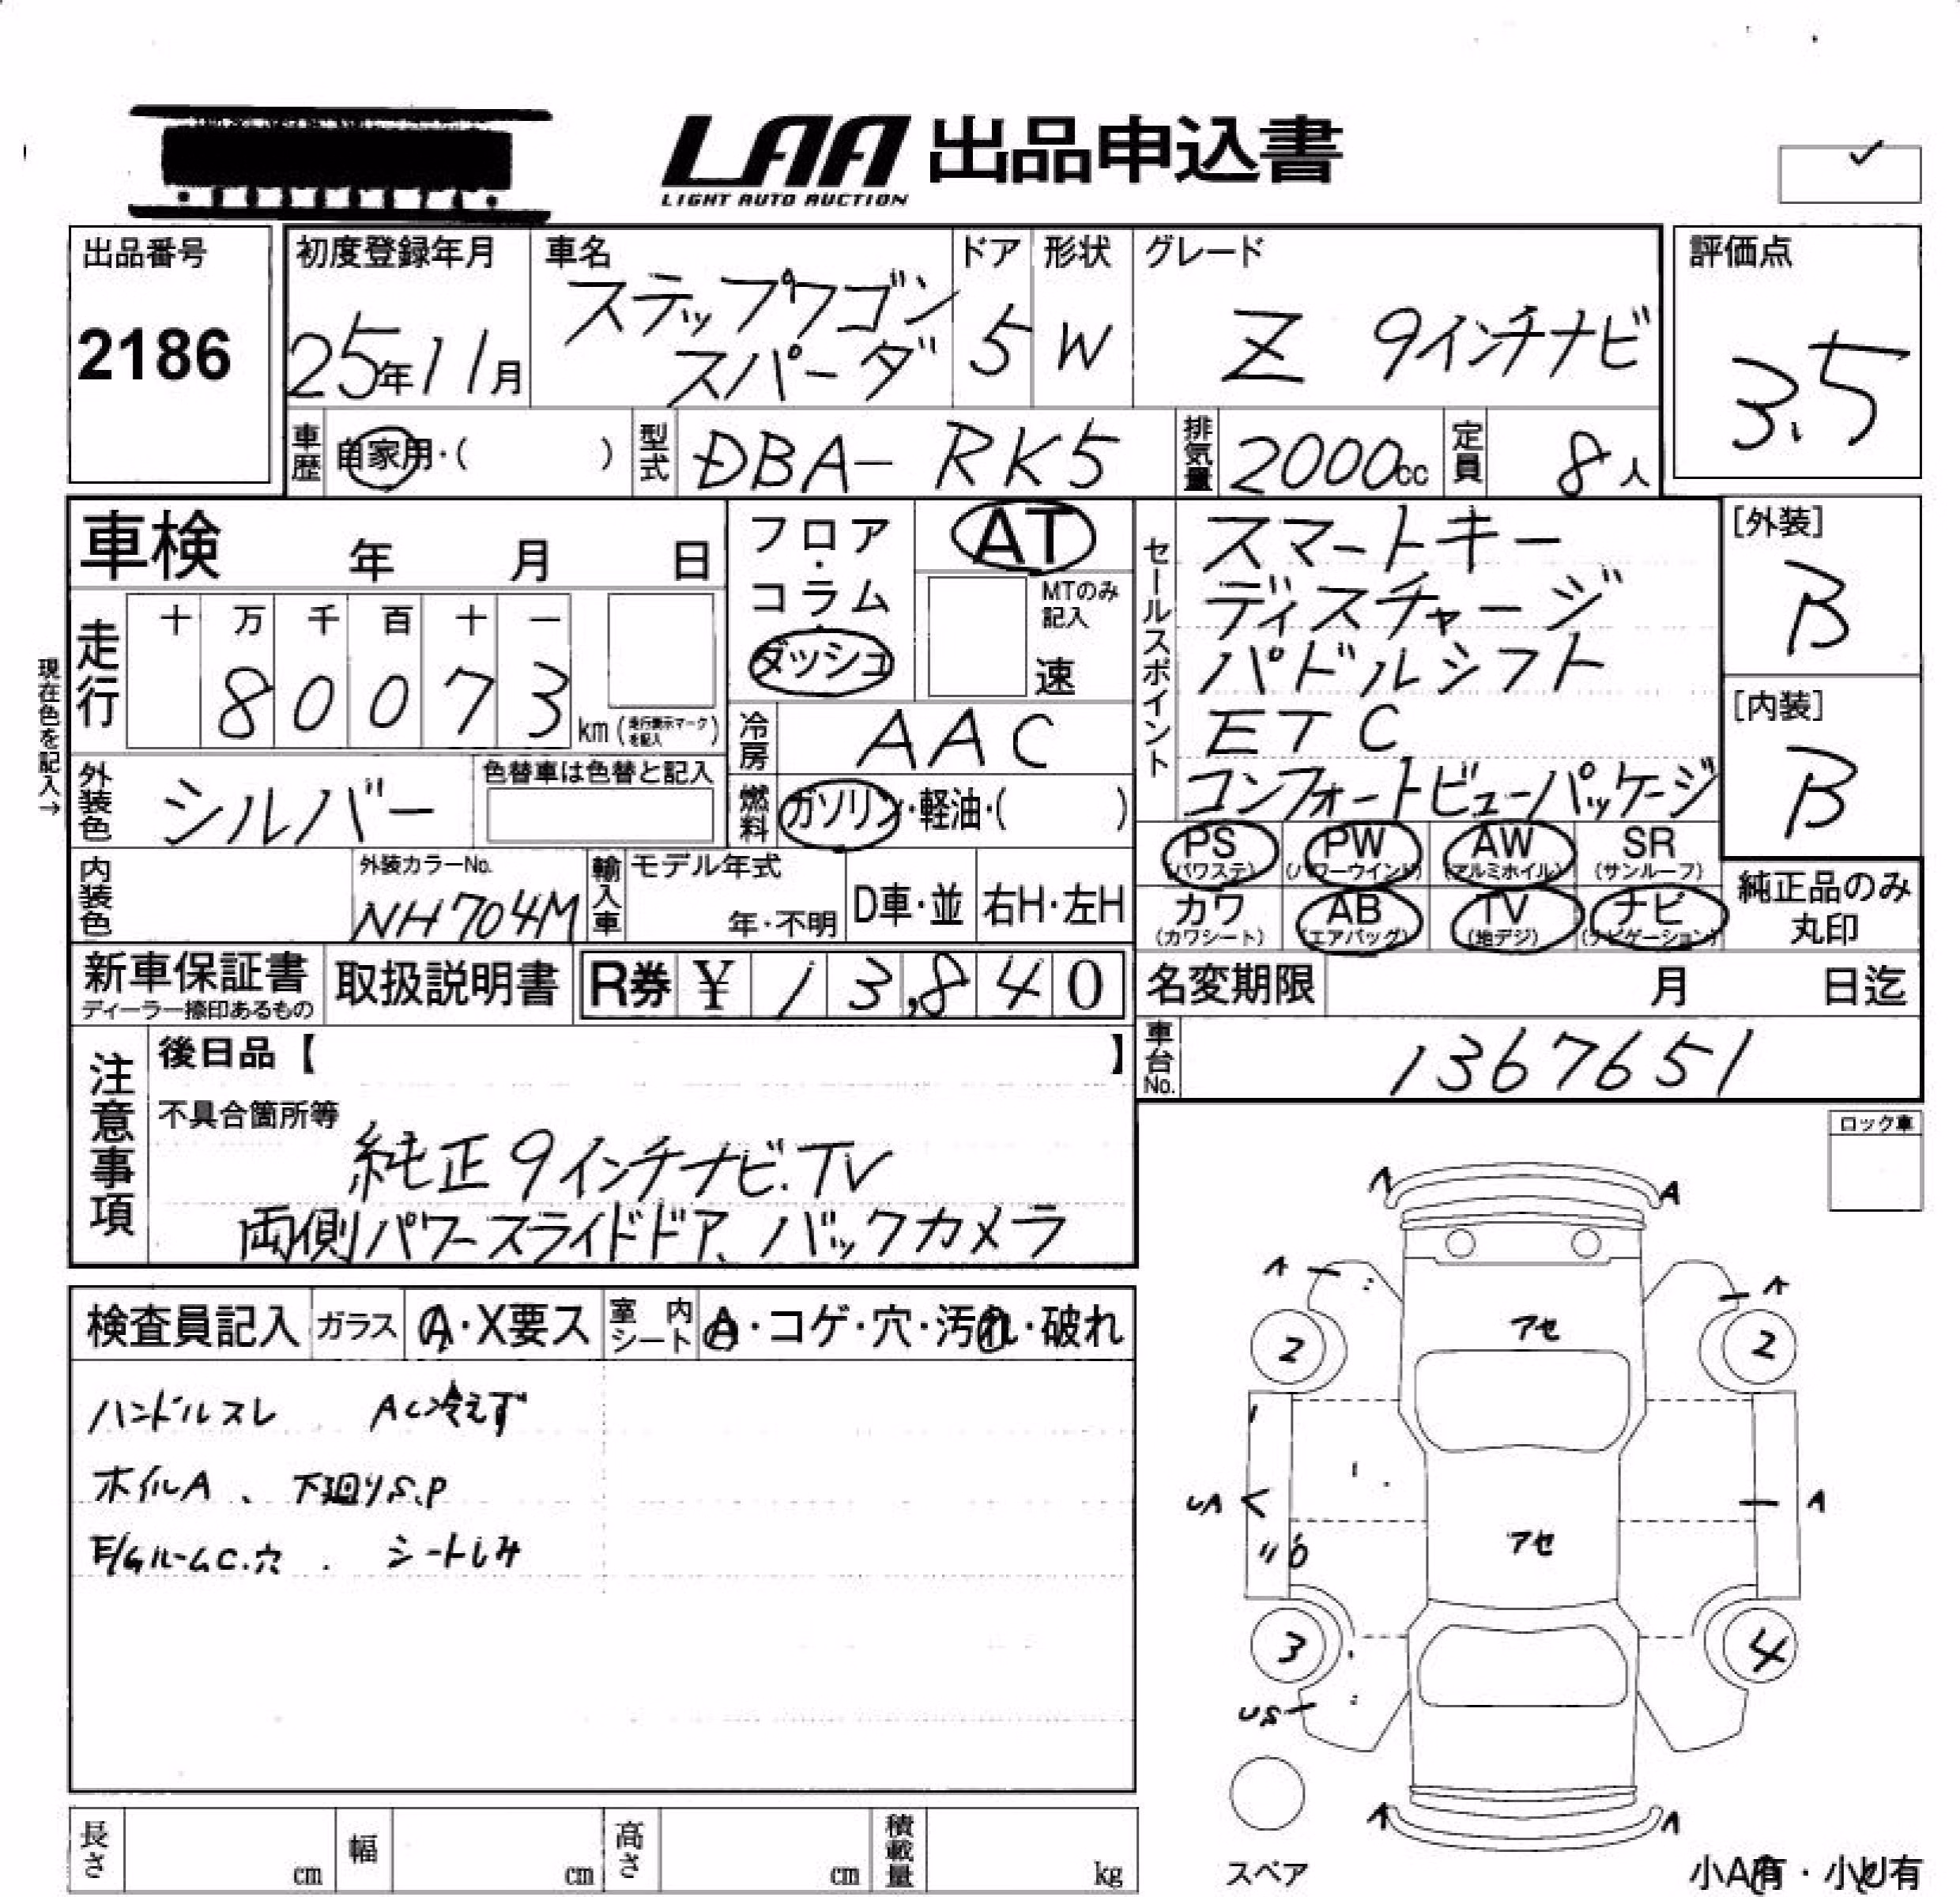 LAA 出品申込書
LIGHT AUTO AUCTION
出品番号
2186
初度登録年月
25年11月
車名
ステップワゴン
スパーダ
ドア
5
形状
W
グレード
Z 9インチナビ
評価点
3.5
車歴
自家用・( )
型式
DBA-RK5
排気量
2000cc
定員
8人
車検 年 月 日
フロア・
コラム・
ダッシュ
AT
MTのみ
記入
速
セールスポイント
スマートキー
ディスチャージ
パドルシフト
ETC
コンフォートビューパッケージ
[外装]
B
[内装]
B
現在色を記入→
走行
十 万 千 百 十 一
8 0 0 7 3
km(走行表示マークを記入)
冷房
AAC
外装色
シルバー
色替車は色替と記入
燃料
ガソリン・軽油・( )
内装色
外装カラーNo.
NH704M
輸入車
モデル年式
年・不明
D車・並
右H・左H
PS PW AW SR
(パワステ) (パワーウインド) (アルミホイル) (サンルーフ)
カワ AB TV ナビ
(カワシート) (エアバッグ) (地デジ) (ナビゲーション)
純正品のみ
丸印
新車保証書
ディーラー捺印あるもの
取扱説明書
R券 ¥ 13,840
名変期限 月 日迄
車台No.
1367651
注意事項
後日品【 】
不具合箇所等
純正9インチナビ.TV
両側パワースライドドア、バックカメラ
ロック車
検査員記入
ガラス
A・X要ス
室内シート
A・コゲ・穴・汚れ・破れ
ハンドルスレ AC冷えず
ホイルA、下廻りS.P
E/GルームC.穴. シートしみ
A A
A A
2 アセ 2
UA A
アセ
3 4
US
A A
スペア
小A有・小U有
長さ cm
幅 cm
高さ cm
積載量 kg